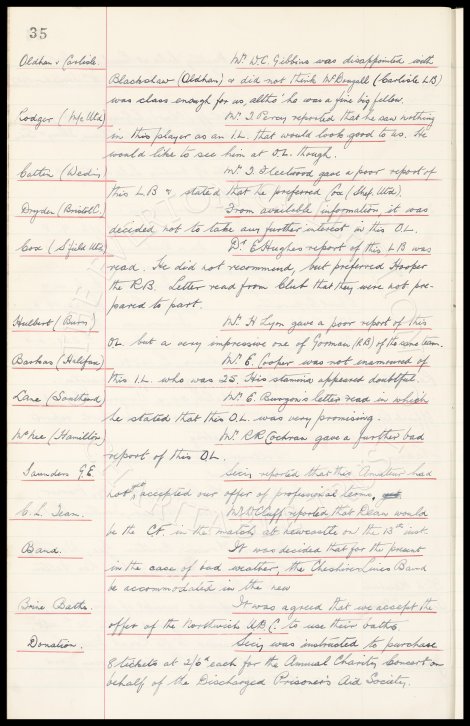 35
Oldham v Carlisle. Mr. W.C. Gibbins was disappointed with
Blackshaw (Oldham) & did not think McDougall (Carlisle L.B)
was class enough for us, altho' he was a fine big fellow.
Rodger (M/c Utd) Mr. J. Percy reported that he saw nothing
in this player as an I.L. that would look good to us. He
would like to see him at O.L. though.
Catlin (Wedns) Mr. J. Fleetwood gave a poor report of
this L B & stated that he preferred Cox (Shef. Utd).
Dryden (Bristol C. From available information it was
decided not to take any further interest in this O.L.
Cox (S'field Utd) Dr. E. Hughes report of this L B was
read. He did not recommend, but preferred Hooper
the R.B. Letter read from Club that they were not pre-
pared to part.
Hulbert (Bury) Mr. H Lyon gave a poor report of this
O.L. but a very impressive one of Gorman (R.B) of the same team.
Barkas (Halifax) Mr. E. Cooper was not enamoured of
this I.L. who was 25. His stamina appeared doubtful.
Lane (Southend) Mr. E. Burgon's letter read in which
he stated that this O.L. was very promising.
McNee (Hamilton) Mr. R.R Cochran gave a further bad
report of this O.L.
Saunders G.E. Secy reported that this Amateur had
not yet accepted our offer of professional terms.
C.L. Team. Mr. W. Cuff reported that Dean would
be the C.F. in the match at Newcastle on the 13th inst.
Band. It was decided that for the present
in the case of bad weather, the Cheshire Lines Band
be accommodated in the new
Brine Baths. It was agreed that we accept the
offer of the Northwich U.D.C. to use their baths.
Donation. Secy was instructed to purchase
8 tickets at 2/6d each for the Annual Charity Concert on
behalf of the Discharged Prisoner's Aid Society.